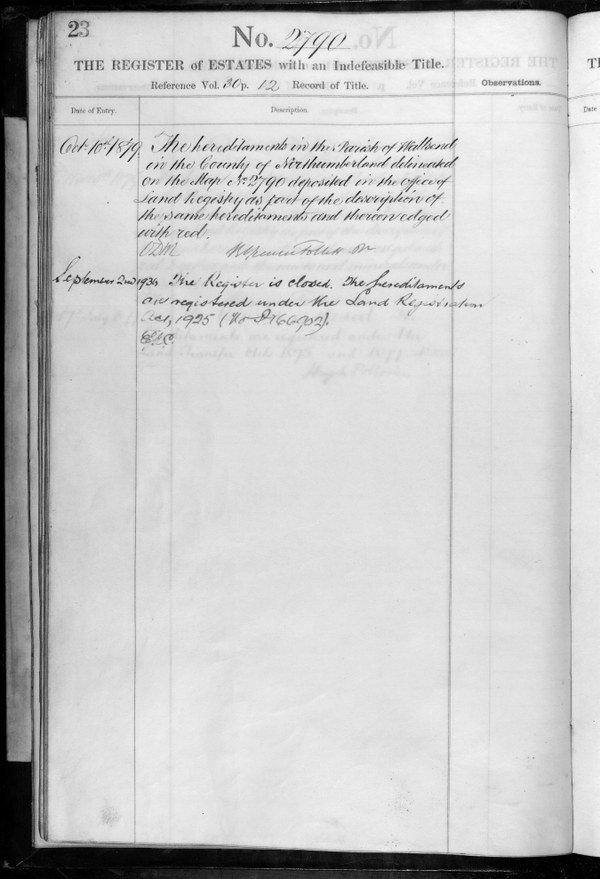 23
No. 2790
THE REGISTER of ESTATES with an Indefeasible Title.
Reference Vol. 30 p. 12 Record of Title. Observations.
Date of Entry. Description.
Oct 10th 1879 The hereditaments in the Parish of Wallsend
in the County of Northumberland delineated
on the Map No 2790 deposited in the office of
Land Registry as part of the description of
the same hereditaments and thereon edged
with red.
September 2nd 1934 The Register is closed. The hereditaments
are registered under the Land Registration
Act, 1925